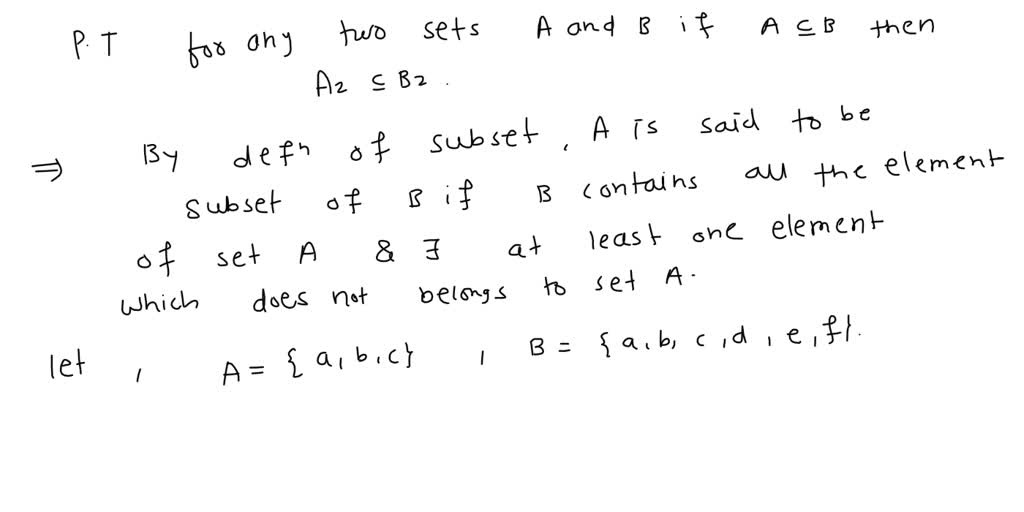 P.T for any two sets A and B if A ⊆ B then
A2 ⊆ B2.
⇒ By defn of subset, A is said to be
subset of B if B contains all the element
of set A & ∃ at least one element
which does not belongs to set A.
let, A = {a, b, c}, B = {a, b, c, d, e, f}.